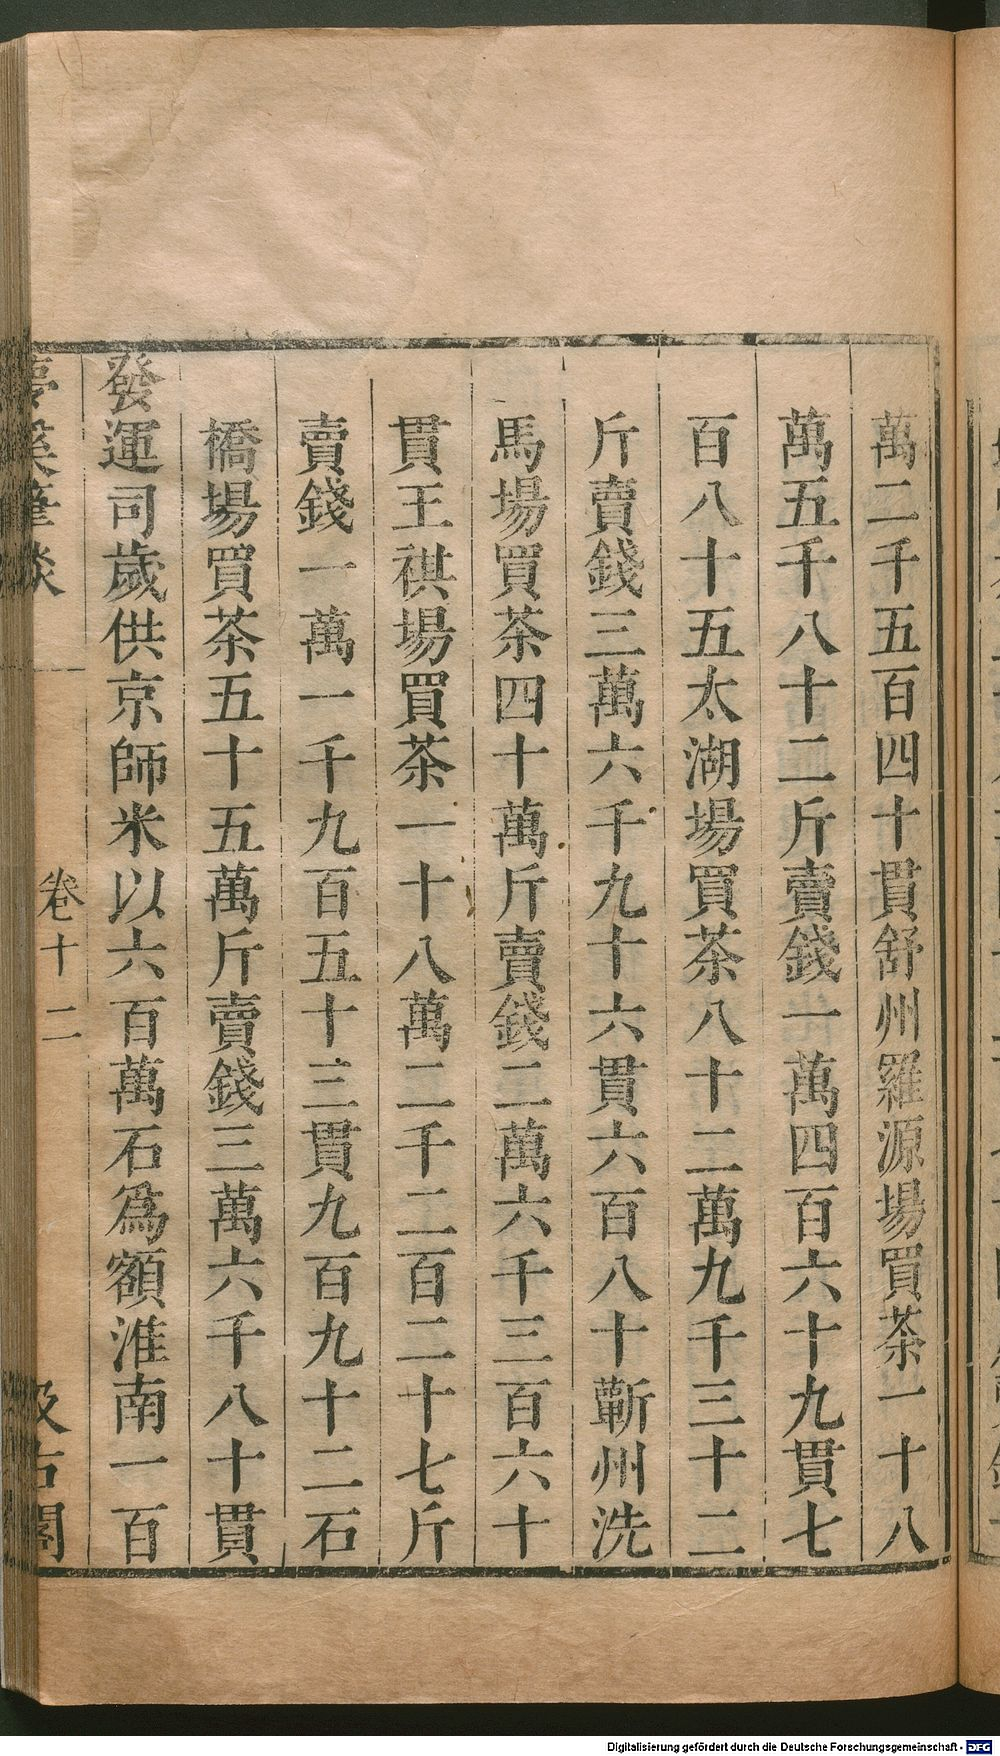 萬二千五百四十貫舒州羅源場買茶一十八
萬五千八十二斤賣錢一萬四百六十九貫七
百八十五太湖場買茶八十二萬九千三十二
斤賣錢三萬六千九十六貫六百八十蘄州洗
馬場買茶四十萬斤賣錢二萬六千三百六十
貫王祺場買茶一十八萬二千二百二十七斤
賣錢一萬一千九百五十三貫九百九十二石
橋場買茶五十五萬斤賣錢三萬六千八十貫
發運司歲供京師米以六百萬石爲額淮南一百
夢溪筆談
卷十二
汲古閣
Digitalisierung gefördert durch die Deutsche Forschungsgemeinschaft - DFG